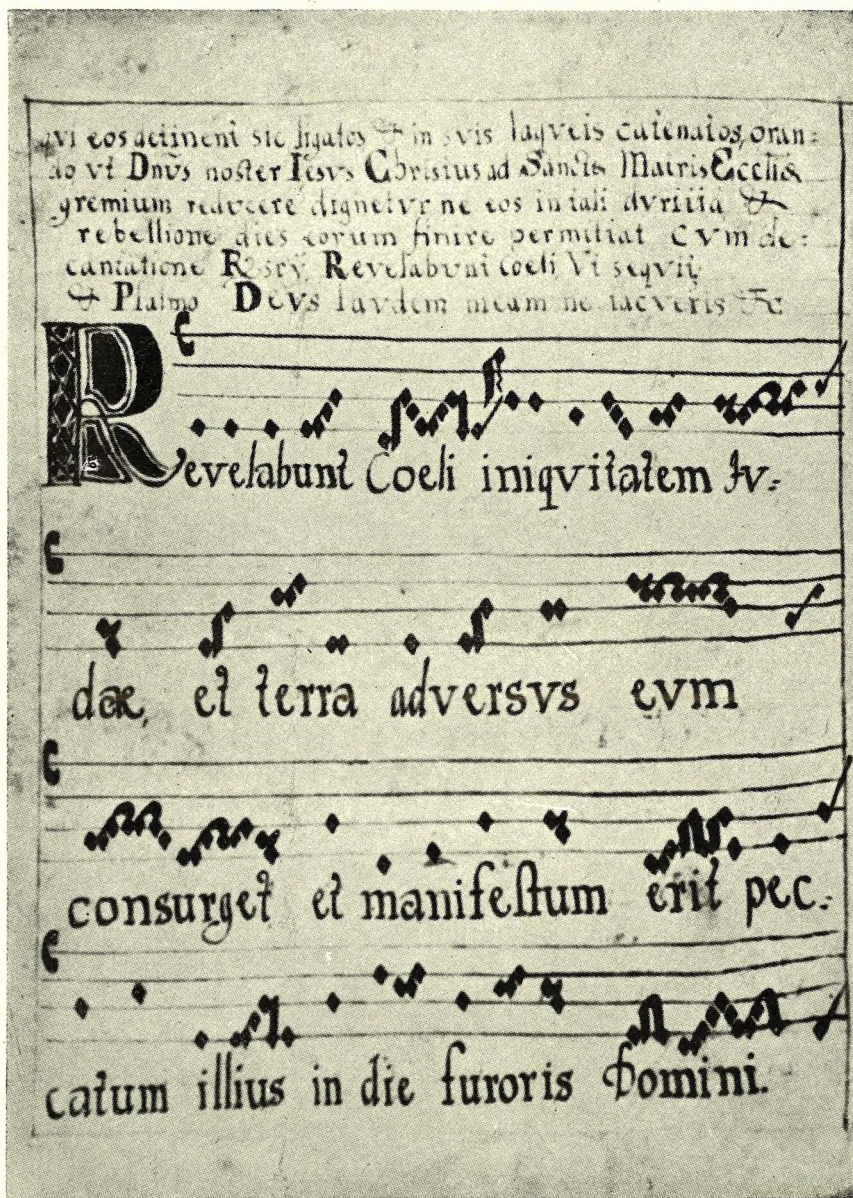 qvi eos detinent sic ligatos & in svis laqveis catenatos, oran:
do vt Dnvs noster Iesvs Christus ad Sanctæ Matris Ecclīæ
gremium redvcere dignetvr ne eos in tali dvritia &
rebellione dies eorum finire permittat Cvm de:
cantatione Revelabunt Coeli Vt seqvit,
& Psalmo Devs lavdem meam ne tacveris &c
Revelabunt Coeli iniqvitatem Iv:
dæ, et terra adversvs evm
consurget et manifestum erit pec:
catum illius in die furoris Domini.